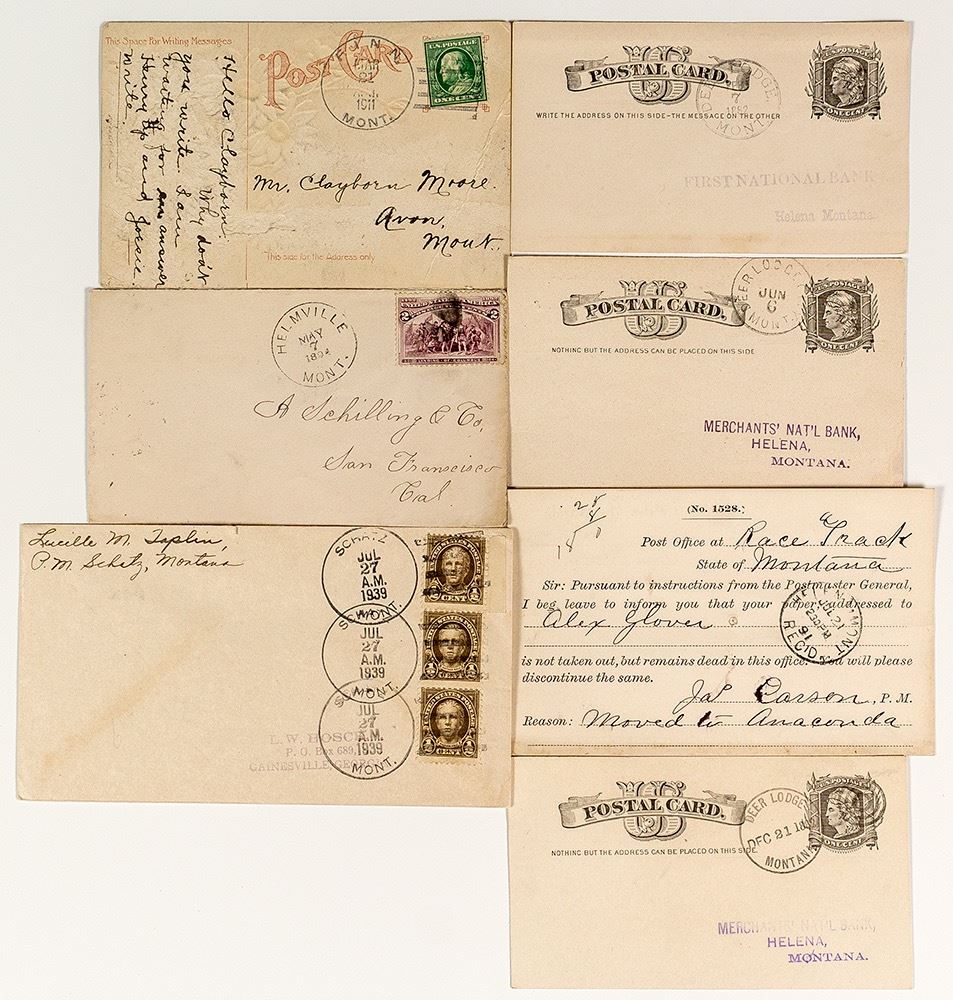 This Space For Writing Messages
POST CARD
FINN
21
1911
MONT.
U.S. POSTAGE
ONE CENT
Hello Clayborn.
Why don't
you write. I am
waiting for an answer
Hurry up and
write.
Mr. Clayborn Moore.
Avon,
Mont.
This side for the Address only
U S
POSTAL CARD.
WRITE THE ADDRESS ON THIS SIDE-THE MESSAGE ON THE OTHER
DEER LODGE,
7
1882
MONT.
U.S. POSTAGE
ONE CENT
FIRST NATIONAL BANK
Helena Montana.
HELMVILLE
MAY
7
MONT.
UNITED STATES OF AMERICA
2 2
LANDING OF COLUMBUS
A Schilling & Co,
San Francisco
Cal.
U S
POSTAL CARD.
NOTHING BUT THE ADDRESS CAN BE PLACED ON THIS SIDE
DEER LODGE
JUN
6
MONT.
U.S. POSTAGE
ONE CENT
MERCHANTS' NAT'L BANK,
HELENA,
MONTANA.
Lucille M. Taplin,
P.M. Schatz, Montana
SCHATZ
JUL
27
A.M.
1939
MONT.
JUL
27
A.M.
1939
MONT.
JUL
27
A.M.
1939
MONT.
½ CENT ½
½ CENT ½
½ CENT ½
L. W. BOSCH
P. O. Box 689,
GAINESVILLE, GEORGIA
(No. 1528.)
Post Office at Race Track
State of Montana
Sir: Pursuant to instructions from the Postmaster General,
I beg leave to inform you that your paper addressed to
Alex Glover
is not taken out, but remains dead in this office. You will please
discontinue the same.
Jas Carson, P. M.
Reason: Moved to Anaconda
HELENA, MONT
JUL 21
PM
91
REC'D.
U S
POSTAL CARD.
NOTHING BUT THE ADDRESS CAN BE PLACED ON THIS SIDE.
DEER LODGE
DEC 21
MONTANA
U.S. POSTAGE
ONE CENT
MERCHANTS' NAT'L BANK,
HELENA,
MONTANA.